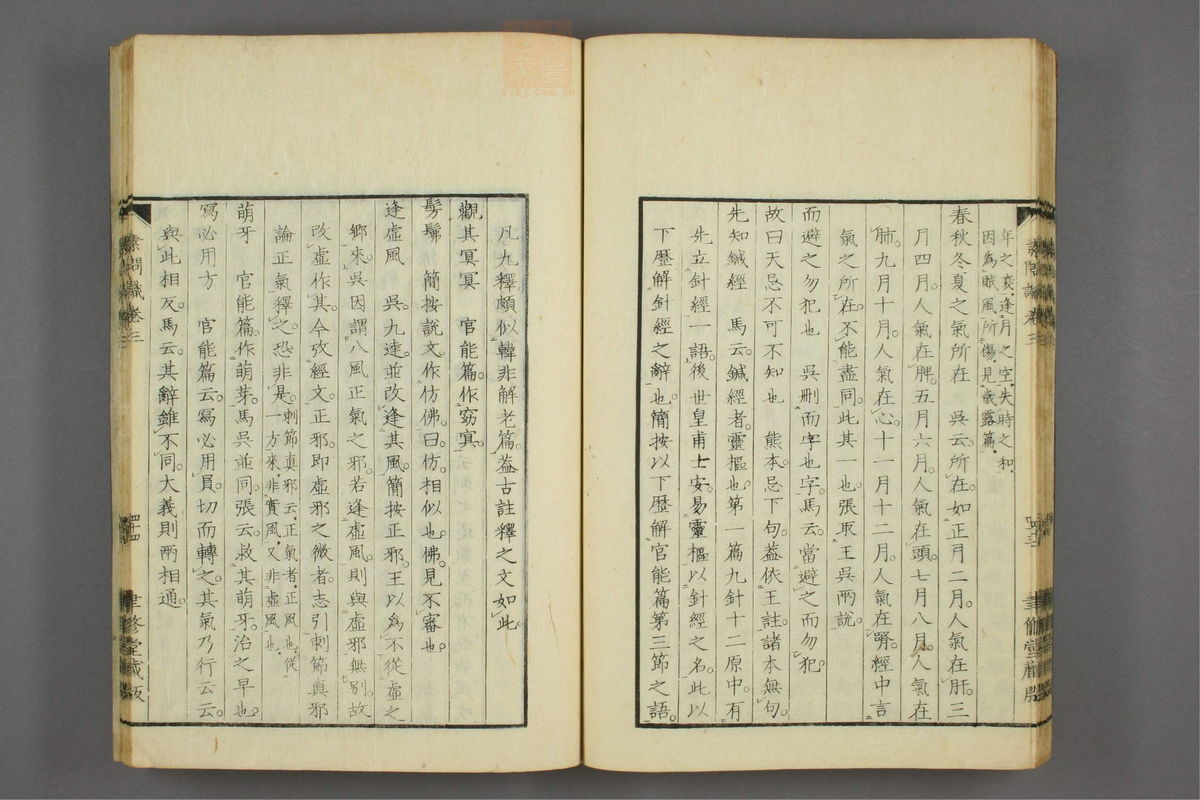 年之衰。逢月之空。失時之和。
因為賊風所傷。見歲露篇。
春秋冬夏之氣所在　吳云。所在。如正月二月。人氣在肝。三
月四月。人氣在脾。五月六月。人氣在頭。七月八月。人氣在
肺。九月十月。人氣在心。十一月十二月。人氣在腎。經中言
氣之所在。不能盡同。此其一也。張取王吳兩說。
而避之勿犯也　吳刪而字也字。馬云。當避之而勿犯。
故曰天忌不可不知也　熊本。忌下句。蓋依王註。諸本無句。
先知鍼經　馬云。鍼經者。靈樞也。第一篇九針十二原中。有
先立針經一語。後世皇甫士安。易靈樞以針經之名。此以
下歷解針經之辭也。簡按以下歷解官能篇第三節之語。
凡九釋。頗似韓非解老篇。蓋古註釋之文如此。
觀其冥冥　官能篇。作窈冥。
髣髴　簡按說文。作仿佛。曰。仿。相似也。佛。見不審也。
逢虛風　吳。九達。並改逢其風。簡按正邪。王以為不從虛之
鄉來。吳因謂八風正氣之邪。若逢虛風。則與虛邪無別。故
改虛作其。今攷經文。正邪。即虛邪之微者。志引刺節真邪
論正氣釋之。恐非是。刺節真邪云。正氣者。正風也。從
一方來。非實風。又非虛風也。
萌牙　官能篇。作萌芽。馬吳並同。張云。救其萌牙。治之早也。
寫必用方　官能篇云。寫必用員。切而轉之。其氣乃行云云。
與此相反。馬云。其辭雖不同。大義則兩相通。
素問識卷三
四十四
聿修堂藏版